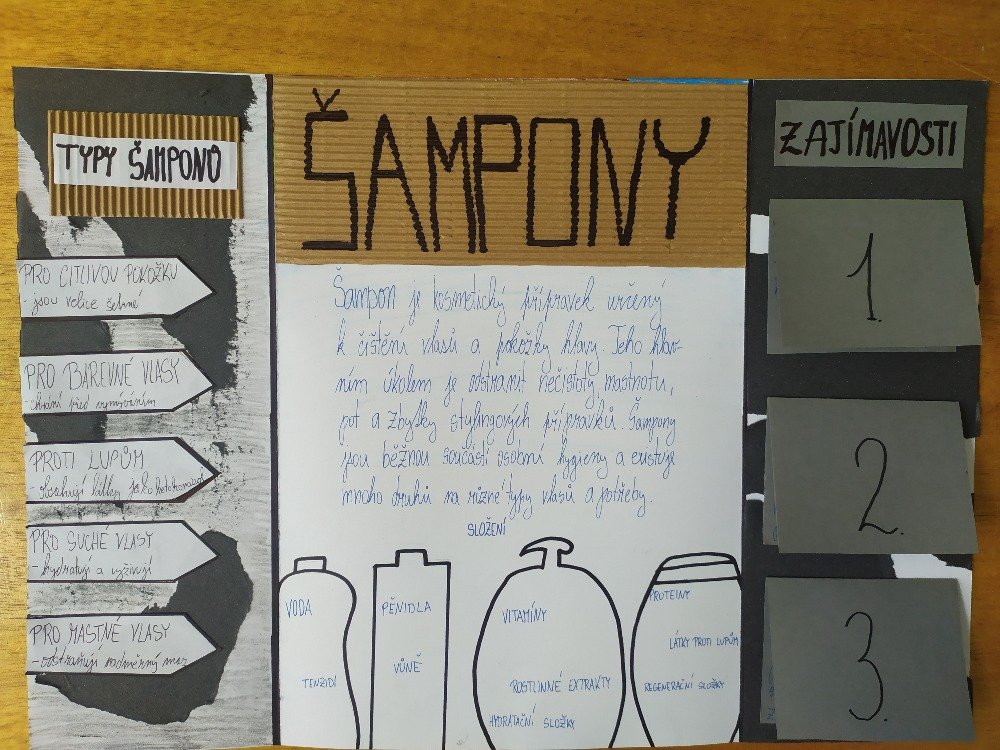 TYPY ŠAMPONŮ
PRO CITLIVOU POKOŽKU
- jsou velice šetrné
PRO BAREVNÉ VLASY
- chrání před vymýváním
PROTI LUPŮM
- obsahují látky jako ketokonazol
PRO SUCHÉ VLASY
- hydratují a vyživují
PRO MASTNÉ VLASY
- odstraňují nadměrný maz
ŠAMPONY
Šampon je kosmetický přípravek určený
k čištění vlasů a pokožky hlavy. Jeho hlav-
ním úkolem je odstranit nečistoty, mastnotu,
pot a zbytky stylingových přípravků. Šampony
jsou běžnou součástí osobní hygieny a existuje
mnoho druhů na různé typy vlasů a potřeby.
SLOŽENÍ
VODA
TENZIDÍ
PĚNIDLA
VŮNĚ
VITAMÍNY
ROSTLINNÉ EXTRAKTY
HYDRATAČNÍ SLOŽKY
PROTEINY
LÁTKY PROTI LUPŮM
REGENERAČNÍ SLOŽKY
ZAJÍMAVOSTI
1.
2.
3.